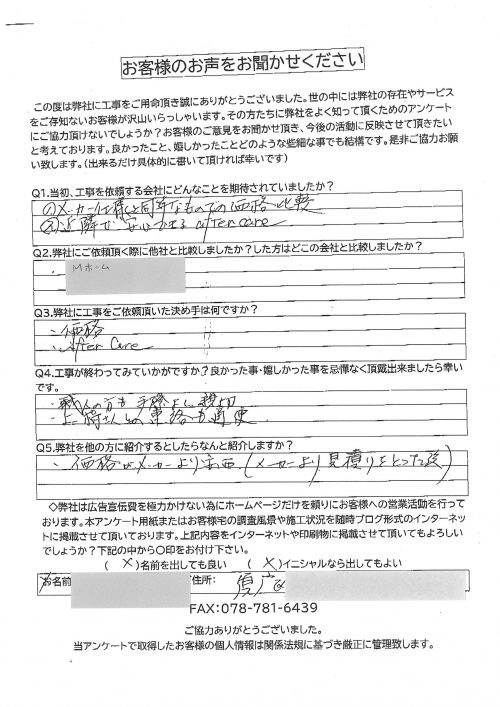 お客様のお声をお聞かせください
この度は弊社に工事をご用命頂き誠にありがとうございました。世の中には弊社の存在やサービス
をご存知ないお客様が沢山いらっしゃいます。その方たちに弊社をよく知って頂くためのアンケート
にご協力頂けないでしょうか？お客様のご意見をお聞かせ頂き、今後の活動に反映させて頂きたい
と考えております。良かったこと、嬉しかったことどのような些細な事でも結構です。是非ご協力お願
い致します。（出来るだけ具体的に書いて頂ければ幸いです）
Q1.当初、工事を依頼する会社にどんなことを期待されていましたか？
①メーカー仕様と同等なものでの価格比較
②近隣で安心できるafter care
Q2.弊社にご依頼頂く際に他社と比較しましたか？した方はどこの会社と比較しましたか？
・Mホーム
Q3.弊社に工事をご依頼頂いた決め手は何ですか？
・価格
・After Care
Q4.工事が終わってみていかがですか？良かった事・嬉しかった事を忌憚なく頂戴出来ましたら幸い
です。
・職人の方も手際よし親切
・上 さんとの連絡も適便
Q5.弊社を他の方に紹介するとしたらなんと紹介しますか？
・価格がメーカーより安価（メーカーより見積りをとった後）
◇弊社は広告宣伝費を極力かけない為にホームページだけを頼りにお客様への営業活動を行って
おります。本アンケート用紙またはお客様宅の調査風景や施工状況を随時ブログ形式のインターネッ
トに掲載させて頂いております。上記内容をインターネットや印刷物に掲載させて頂いてもよろしい
でしょうか？下記の中から〇印をお付け下さい。
（ × ）名前を出しても良い （ × ）イニシャルなら出してもよい
お名前 ご住所:
FAX:078-781-6439
ご協力ありがとうございました。
当アンケートで取得したお客様の個人情報は関係法規に基づき厳正に管理致します。